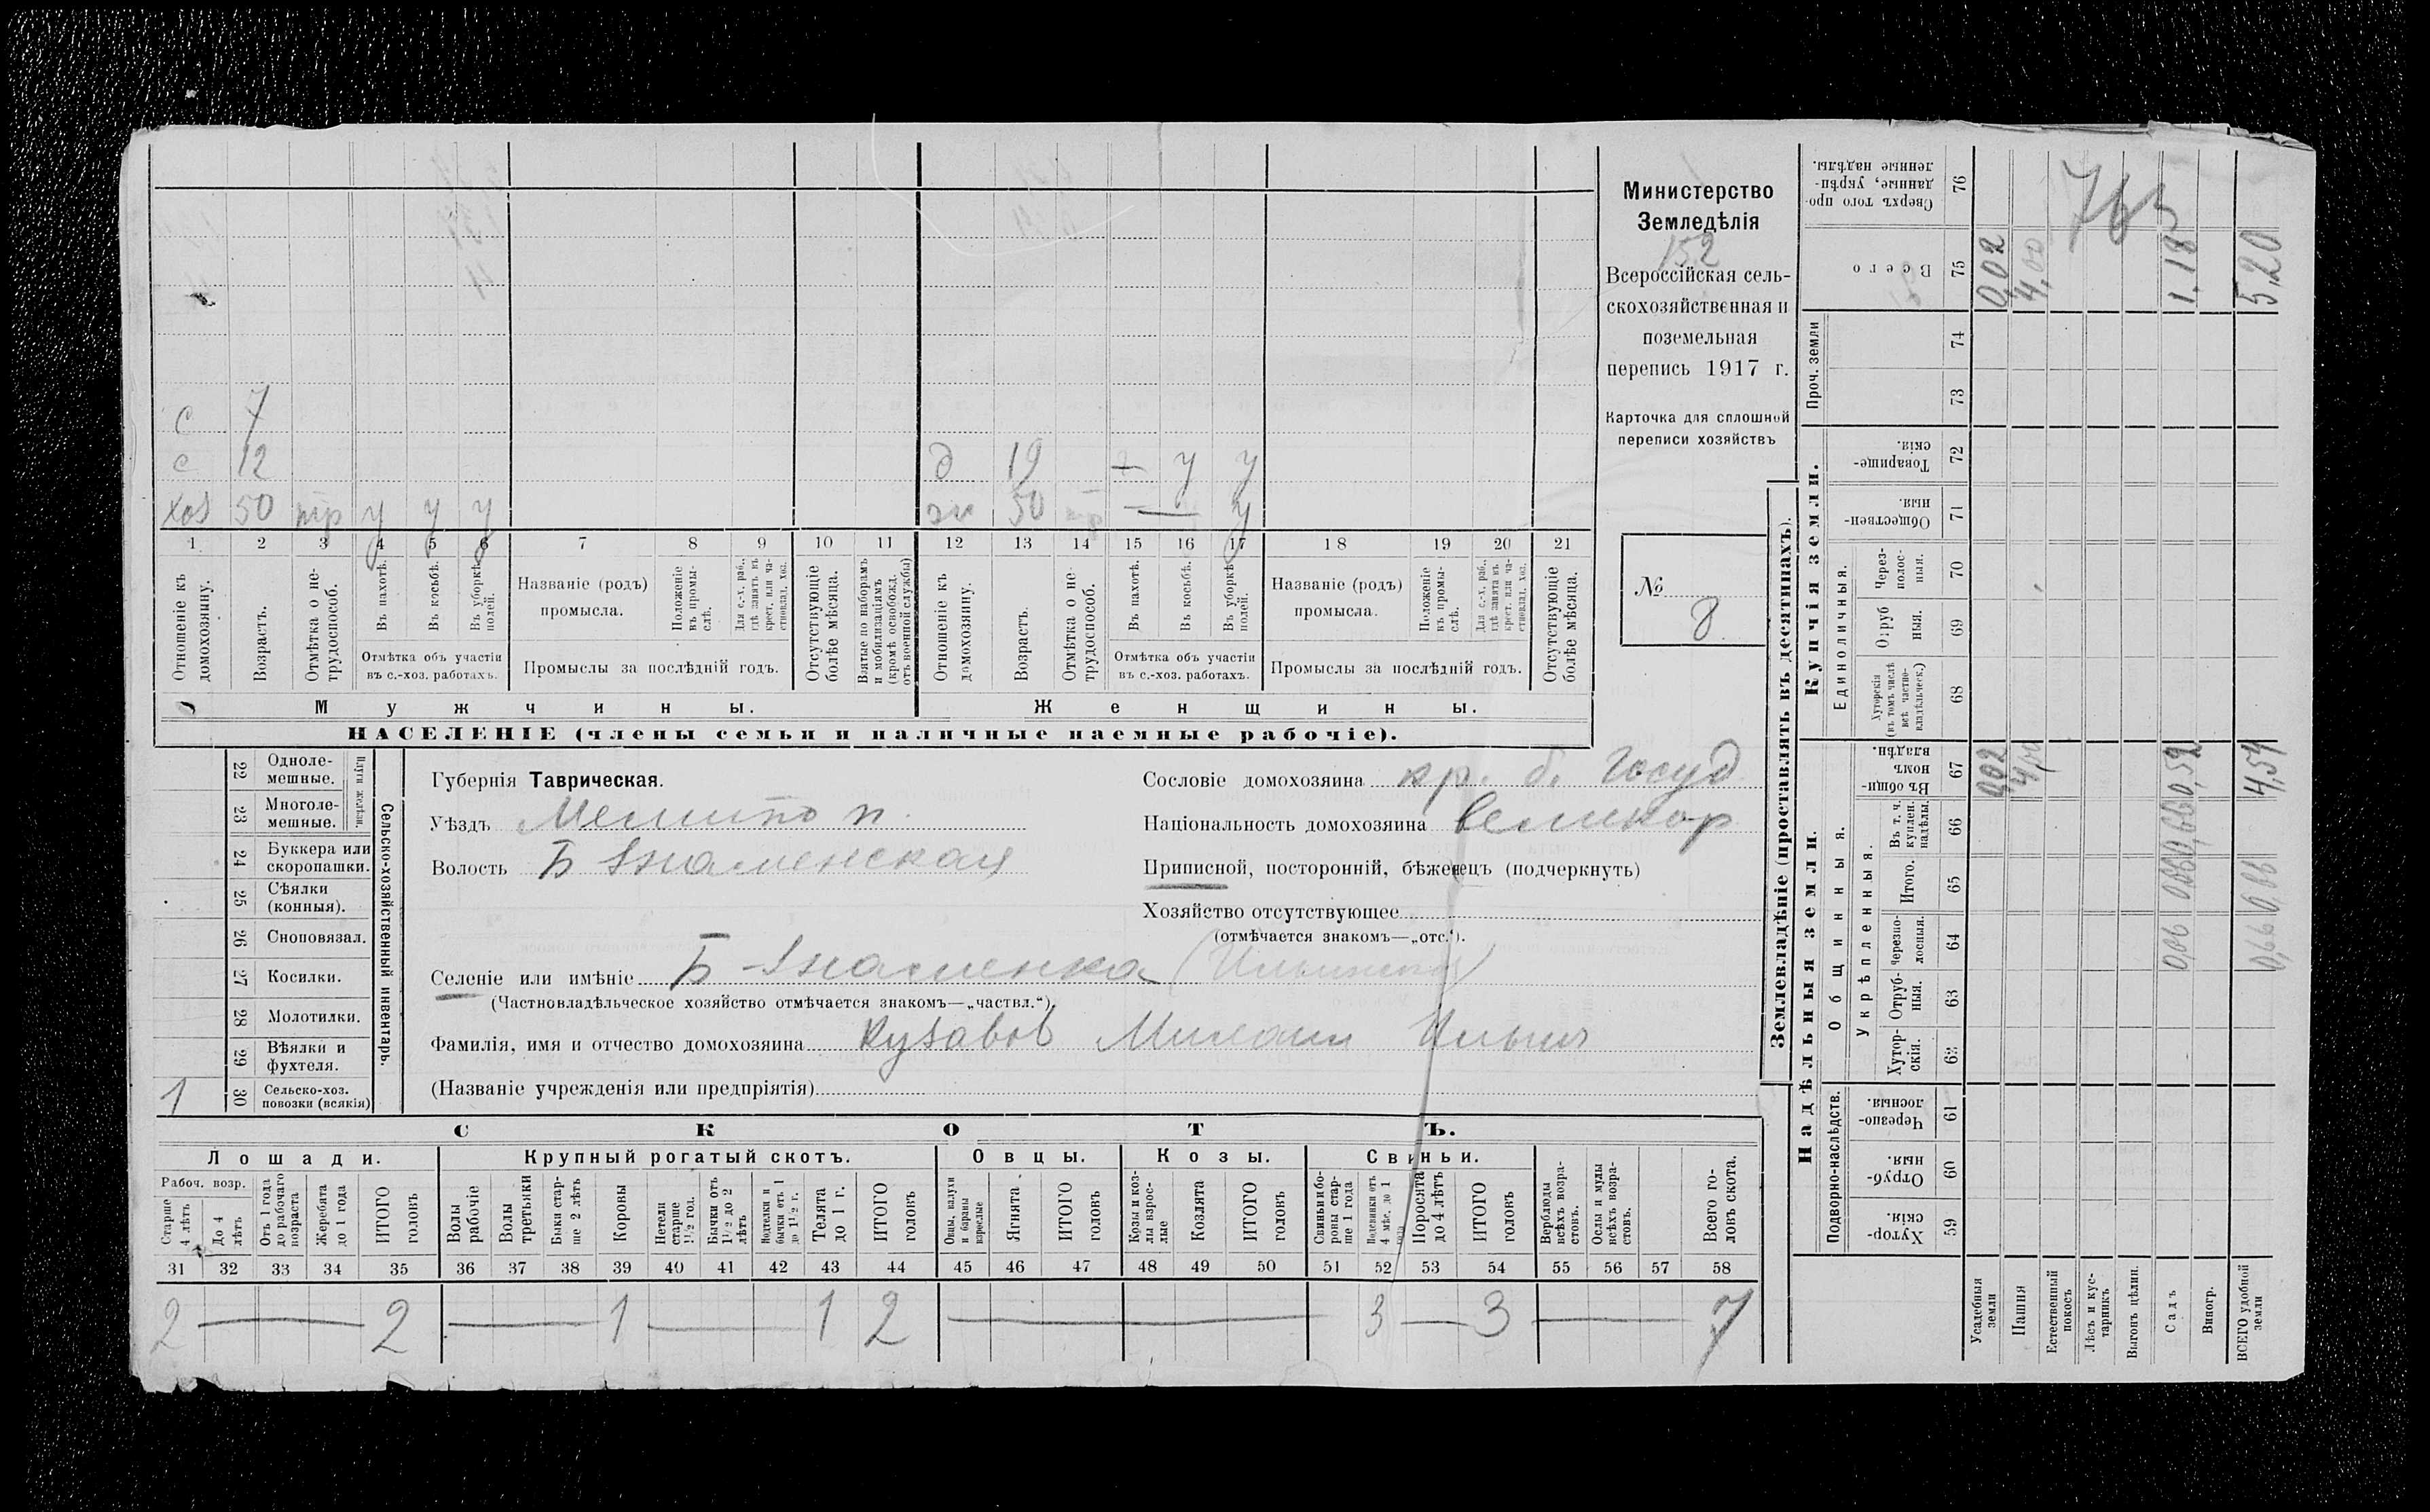 Министерство
Земледѣлія
152
Всероссійская сель-
скохозяйственная и
поземельная
перепись 1917 г.
Карточка для сплошной
переписи хозяйствъ
№
8
с 7
с 12 д 19 — у у
хоз 50 тр у у у ж 50 — у
1 2 3 4 5 6 7 8 9 10 11 12 13 14 15 16 17 18 19 20 21
Отношеніе къ домохозяину.
Возрастъ.
Отмѣтка о не-трудоспособ.
Въ пахотѣ.
Въ косьбѣ.
Въ уборкѣ полей.
Отмѣтка объ участіи
въ с.-хоз. работахъ.
Названіе (родъ)
промысла.
Положеніе въ промы-слѣ.
Для с.-х. раб., гдѣ занятъ въ крест. или ча-стновлад. хоз.
Промыслы за послѣдній годъ.
Отсутствующіе болѣе мѣсяца.
Взятые по наборамъ и мобилизаціямъ (кромѣ освобожд. отъ военной службы)
Отношеніе къ домохозяину.
Возрастъ.
Отмѣтка о не-трудоспособ.
Въ пахотѣ.
Въ косьбѣ.
Въ уборкѣ полей.
Отмѣтка объ участіи
въ с.-хоз. работахъ.
Названіе (родъ)
промысла.
Положеніе въ промы-слѣ.
Для с.-х. раб., гдѣ занята въ крест. или ча-стновлад. хоз.
Промыслы за послѣдній годъ.
Отсутствующіе болѣе мѣсяца.
Мужчины. Женщины.
НАСЕЛЕНІЕ (члены семьи и наличные наемные рабочіе).
22 Одноле-мешные.
23 Многоле-мешные.
Плуги желѣзн.
24 Буккера или скоропашки.
25 Сѣялки (конныя).
26 Сноповязал.
27 Косилки.
28 Молотилки.
29 Вѣялки и фухтеля.
1 30 Сельско-хоз. повозки (всякія)
Сельско-хозяйственный инвентарь.
Губернія Таврическая.
Уѣздъ Мелитоп.
Волость Б Знаменская
Сословіе домохозяина кр. б. Госуд
Національность домохозяина великор
Приписной, посторонній, бѣженецъ (подчеркнуть)
Хозяйство отсутствующее
(отмѣчается знакомъ—„отс.“).
Селеніе или имѣніе Б-Знаменка (Ильинская)
(Частновладѣльческое хозяйство отмѣчается знакомъ—„частвл.“).
Фамилія, имя и отчество домохозяина Кузавов Михаил Ильич
(Названіе учрежденія или предпріятія)
СКОТЪ.
Лошади. Крупный рогатый скотъ. Овцы. Козы. Свиньи.
Рабоч. возр.
Старше 4 лѣтъ
До 4 лѣтъ
Отъ 1 года до рабочаго возраста
Жеребята до 1 года
ИТОГО головъ
Волы рабочіе
Волы третьяки
Быки стар-ше 2 лѣтъ
Коровы
Нетели старше 1½ год.
Бычки отъ 1½ до 2 лѣтъ
Телки и бычки отъ 1 до 1½ г.
Телята до 1 г.
ИТОГО головъ
Овцы, валухи и бараны взрослые
Ягнята
ИТОГО головъ
Козы и коз-лы взрос-лые
Козлята
ИТОГО головъ
Свиньи и бо-ровы стар-ше 1 года
Подсвинки отъ 4 мѣс. до 1 года
Поросята до 4 лѣтъ
ИТОГО головъ
Верблюды всѣхъ возра-стовъ.
Ослы и мулы всѣхъ возра-стовъ.
Всего го-ловъ скота.
31 32 33 34 35 36 37 38 39 40 41 42 43 44 45 46 47 48 49 50 51 52 53 54 55 56 57 58
2 — 2 — 1 — 1 2 — 3 — 3 — 7
Землевладѣніе (проставлять въ десятинахъ).
Купчія земли.
Надѣльныя земли.
Сверхъ того про-данные, укрѣп-ленные надѣлы. 76
Всего 75
Проч. земли 74 73
Товарище-скія. 72
Обществен-ныя 71
Единоличныя.
Через-полос-ныя. 70
Отруб-ныя. 69
Хуторскія (въ томъ числѣ всѣ частно-владѣльческ.) 68
Общинныя.
Въ общи-номъ владѣн. 67
Укрѣпленныя.
Въ т. ч. куплен. надѣлы. 66
Итого. 65
Черезпо-лосныя. 64
Отруб-ныя. 63
Хутор-скія. 62
Подворно-наслѣдств.
Черезпо-лосныя. 61
Отруб-ныя. 60
Хутор-скія. 59
Усадебныя земли 0,02 0,02
Пашня 4,00
Естественный покосъ
Лѣсъ и кус-тарникъ
Выгонъ цѣлин.
Садъ 0,66 0,52 1,18
Виногр.
ВСЕГО удобной земли 0,66 4,54 5,20